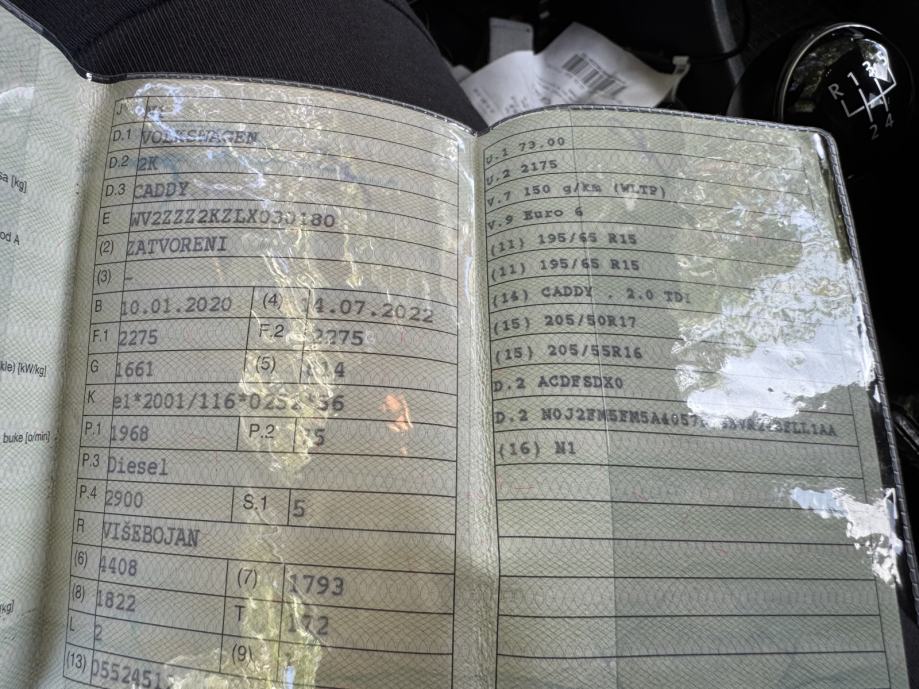 sa [kg]
od A
kle) [kW/kg]
buke [o/min]
[kg]
J
D.1 VOLKSWAGEN
D.2 2K
D.3 CADDY
E
(2) ZATVORENI
(3) -
B 10.01.2020 (4) 14.07.2022
F.1 2275 F.2 2275
G 1661 (5)
K
P.1 1968 P.2
P.3 Diesel
P.4 2900 S.1 5
R VIŠEBOJAN
(6) 4408 (7) 1793
(8) 1822 T 172
L 2 (9)
(13)
U.1 73.00
U.2 2175
V.7 150 g/km (WLTP)
V.9 Euro 6
(11) 195/65 R15
(11) 195/65 R15
(14) CADDY . 2.0 TDI
(15) 205/50R17
(15) 205/55R16
D.2 ACDFSDX0
D.2
(16) N1
R 1 3
2 4